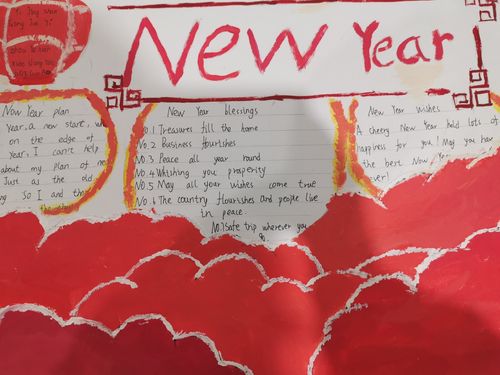 New Year
New Year plan
year, a new start, wh
on the edge of
year, I can't help
about my plan of ne
Just as the old
ng. So I and th
New Year blessings
No.1 Treasures fill the home
No.2 Business flourishes
No.3 Peace all year round
No.4 Whishing you prosperity
No.5 May all your wishes come true
No.6 The country flourishes and people live
in peace.
No.7 Safe trip wherever you
go
New Year wishes
A cheery New Year hold lots of
happiness for you! May you hav
the best New Year
ever!